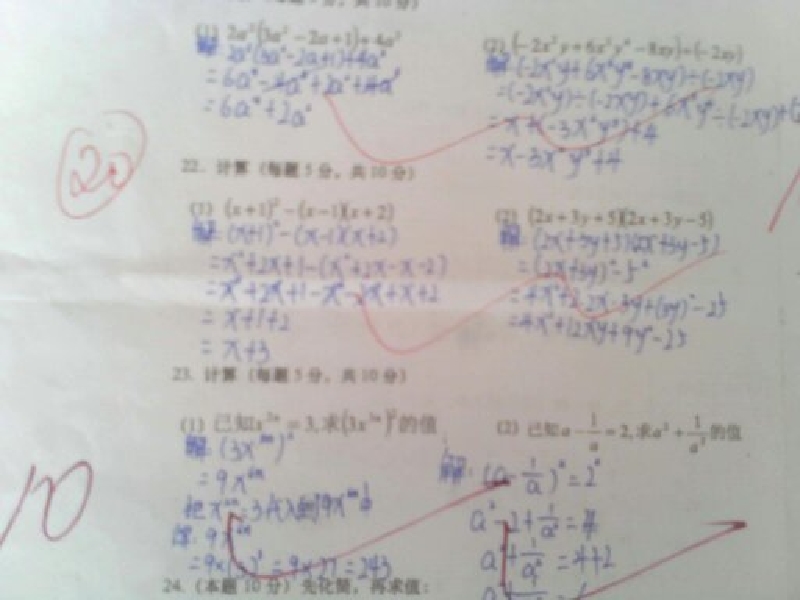 (1) 2a²(3a² - 2a + 1) + 4a³
解: 2a²(3a² - 2a + 1) + 4a³
= 6a⁴ - 4a³ + 2a² + 4a³
= 6a⁴ + 2a²
(2) (-2x²y + 6x³y⁴ - 8xy) ÷ (-2xy)
= x - 3x²y³ + 4
20
22. 计算 (每题 5 分, 共 10 分)
(1) (x+1)² - (x-1)(x+2)
解: (x+1)² - (x-1)(x+2)
= x² + 2x + 1 - (x² + 2x - x - 2)
= x² + 2x + 1 - x² - 2x + x + 2
= x + 1 + 2
= x + 3
(2) (2x+3y+5)(2x+3y-5)
解: (2x+3y+5)(2x+3y-5)
= (2x+3y)² - 5²
= 4x² + 2·2x·3y + (3y)² - 25
= 4x² + 12xy + 9y² - 25
23. 计算 (每题 5 分, 共 10 分)
(1) 已知x²ⁿ = 3, 求(3x³ⁿ)²的值
解: (3x³ⁿ)²
= 9x⁶ⁿ
= 9×27 = 243
(2) 已知a - 1/a = 2, 求a² + 1/a²的值
解: (a - 1/a)² = 2²
a² - 2 + 1/a² = 4
a² + 1/a² = 4+2
10
24. (本题 10 分) 先化简, 再求值: